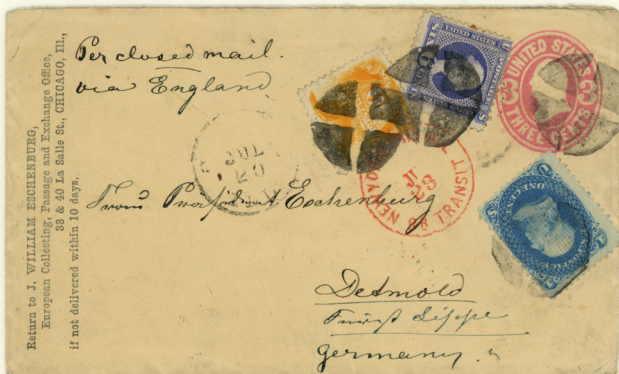 Return to J. WILLIAM ESCHENBURG,
European Collecting, Passage and Exchange Office,
38 & 40 La Salle St., CHICAGO, Ill.,
if not delivered within 10 days.
Per closed mail.
via England
UNITED STATES
3 3
THREE CENTS
JUL
NEW YO BR TRANSIT
Eschenburg
Detmold
Lippe
Germany.